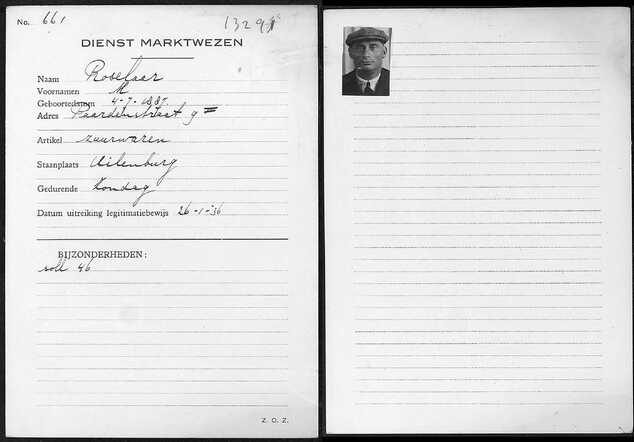 No. 661 13291
DIENST MARKTWEZEN
Naam Roselaar
Voornamen M
Geboortedatum 4-7-1887.
Adres Paardenstraat 9
Artikel zuurwaren
Staanplaats Uilenburg
Gedurende Zondag
Datum uitreiking legitimatiebewijs 26-1-36
BIJZONDERHEDEN:
soll 46
Z. O. Z.